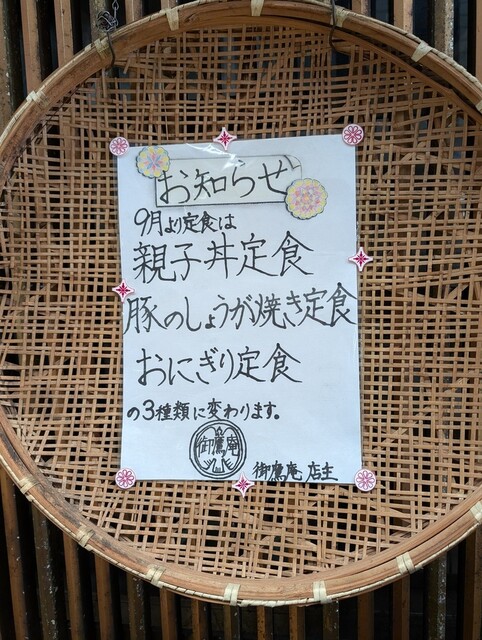 お知らせ
9月より定食は
親子丼定食
豚のしょうが焼き定食
おにぎり定食
の3種類に変わります。
御鷹庵
御鷹庵 店主